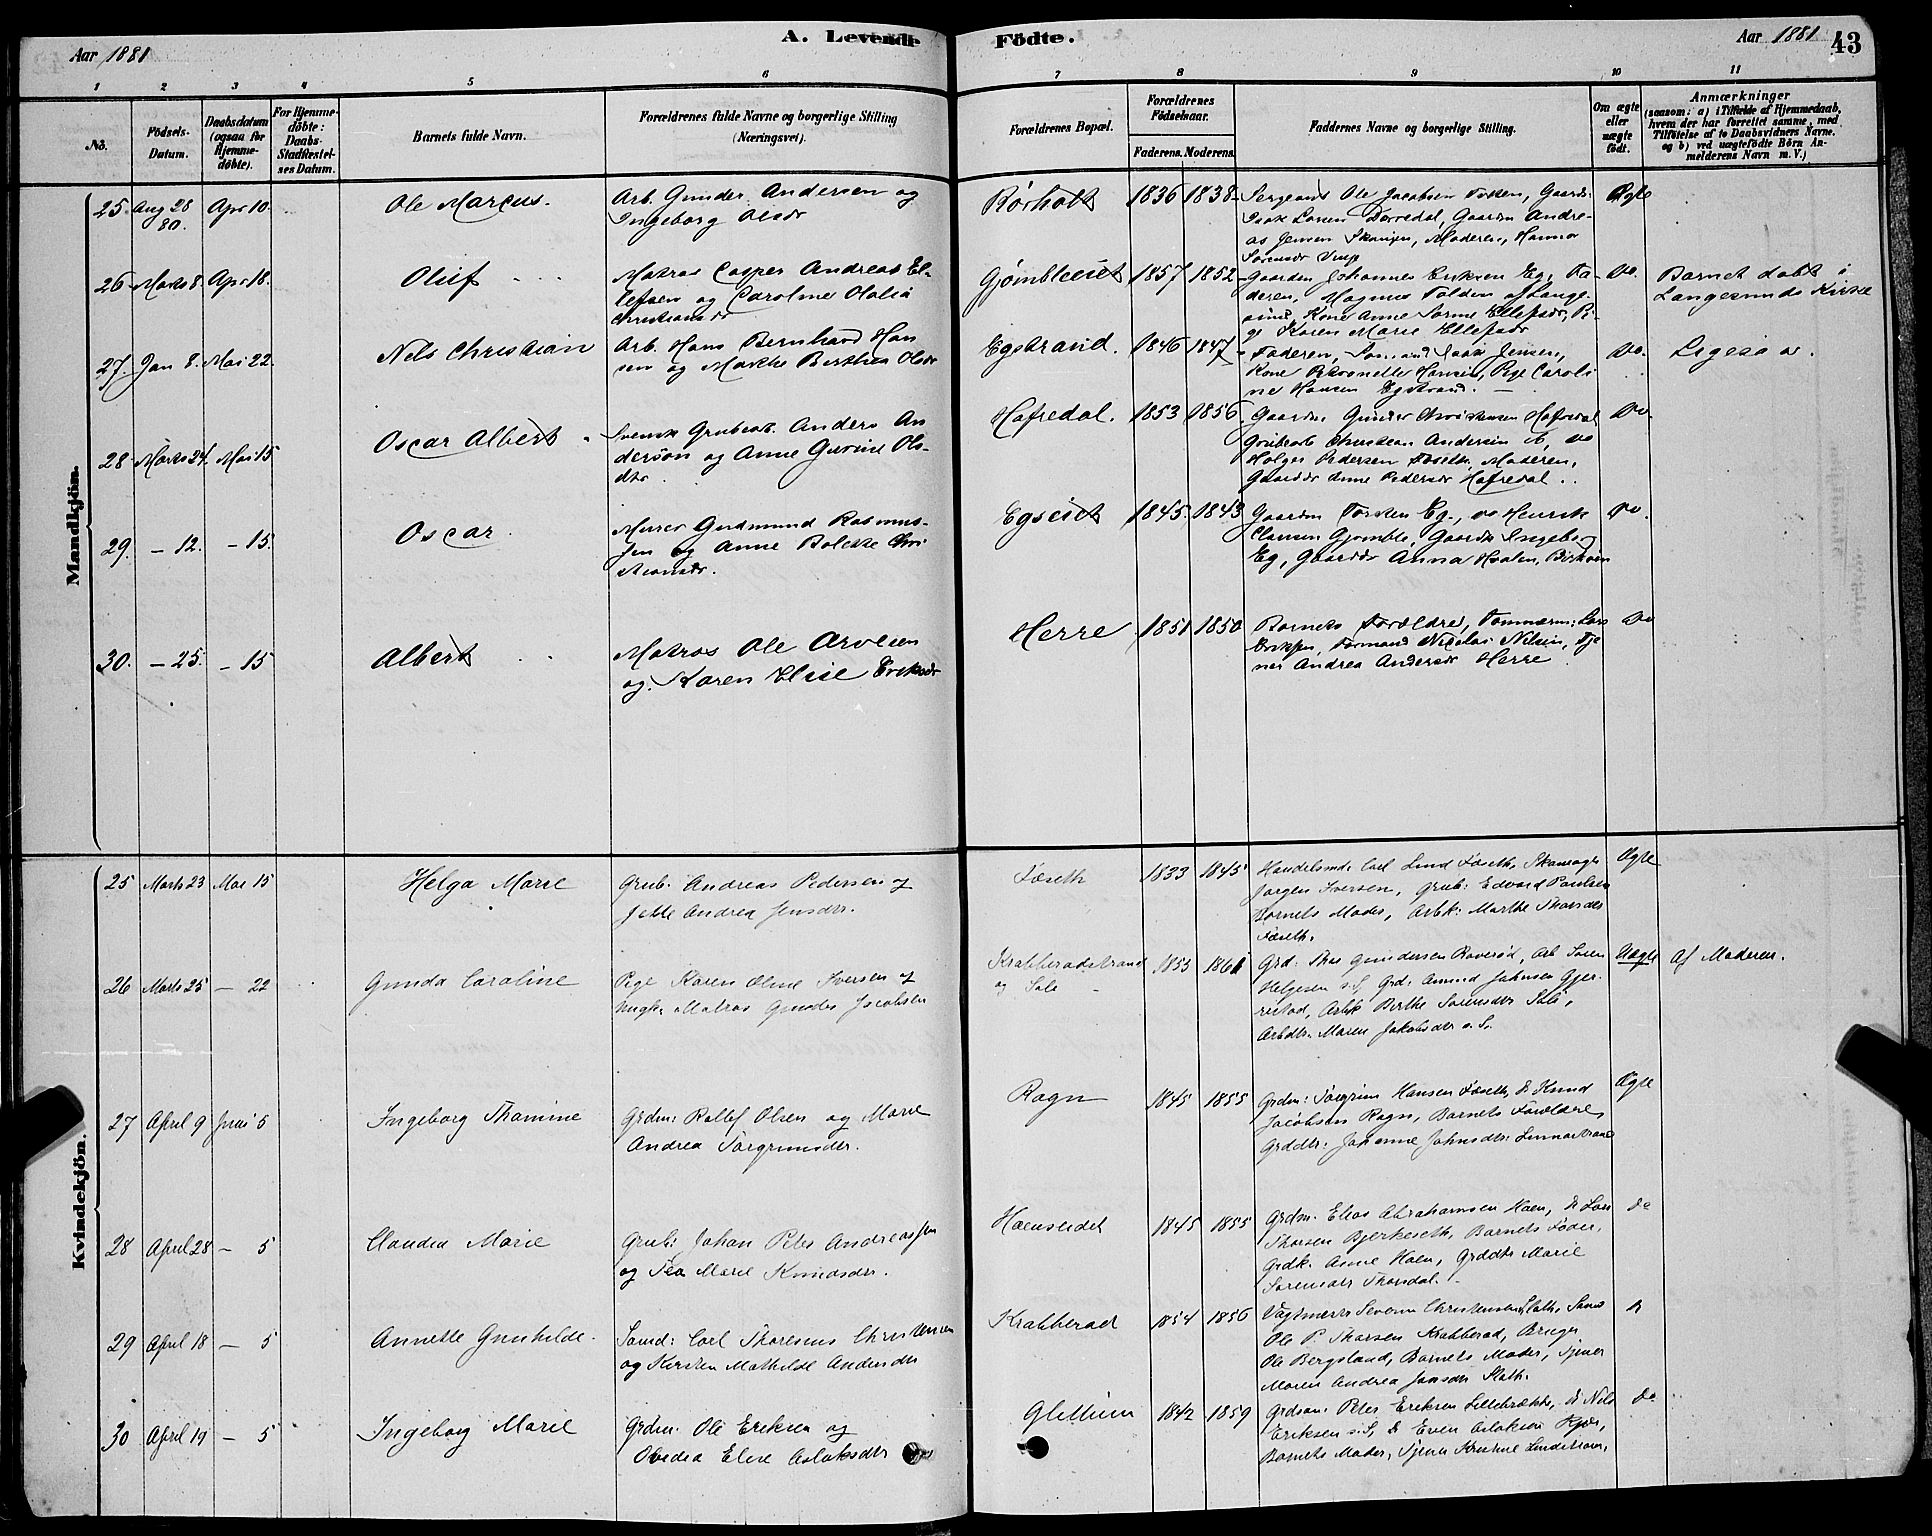 Aar 1881
A. Levende Födte.
Aar 1881
43
1 2 3 4 5 6 7 8 9 10 11
No.
Födsels-Datum.
Daabsdatum (ogsaa for Hjemmedöbte).
For Hjemmedöbte: Daabs-Stadfæstelses Datum.
Barnets fulde Navn.
Forældrenes fulde Navne og borgerlige Stilling (Næringsvei).
Forældrenes Bopæl.
Forældrenes Födselsaar.
Faderens. Moderens.
Faddernes Navne og borgerlige Stilling.
Om ægte eller uægte födt.
Anmærkninger
(saasom: a) i Tilfælde af Hjemmedaab, hvem der har forrettet samme, med Tilföielse af to Daabsvidners Navne. og b) ved uægtefödte Börn Anmelderens Navn m. V.)
Mandkjön.
25. Aug 28 80. Apr 10. Ole Marcus.
Arb. Gunder Andersen og
Ingeborg Olsdr
Rörholt 1836 1838
Sergeant Ole Jacobsen Gaard:
Isak Larsen Gaardm Andre-
as Jensen Moderen, Hanna
Sörensdr
Ægte
26. Marts 8. Apr 18. Oluf
Matros Casper Andreas El-
lefsen og Caroline Olalia
Christiansdr
1857 1852
Gaardm Johannes Eriksen Eg, Fa-
deren, Magnus Folden af Lange-
sund, Kone Anne Ellefsdr, Pi-
ge Karen Marie Ellefsdr
Do.
Barnet döbt i
Langesunds Kirke
27. Jan 8. Mai 22. Nels Christian
Arb. Hans Bernhard Han
sen og Marthe Berthea Olsdr
Egstrand. 1846 1847
Faderen, Isak Jensen,
Kone Petronelle Hansen, Pige Caroli
ne Hansen Egstrand.
Do.
Ligesaa.
28. Marts 24. Mai 15 Oscar Albert
Svensk Grubearb. Anders An
derson og Anne Gurine Ols-
dtr.
Hafredal. 1853 1856
Gaardm Gunder Christensen Hafredal
Grubearb Christian Andersen do
Holger Pedersen Moderen,
Gaarddr Anne Pedersdr Hafredal.
Do.
29. - 12. - 15. Oscar
Murer Gudmund Rasmus-
sen og Anne Bolette Chri
stiansdr.
Egseiet 1845. 1843
Gaardm Torsten Eg, do Henrik
Clausen Gjömble, Gaardk Ingeborg
Eg, Gaarddr Anna
Do.
30. - 25. - 15 Albert
Matros Ole Arvesen
og Karen Elise Eriksdr
Herre 1851 1850
Barnets Foreldre, Tömmerm: Lars
Eriksen, Formand Nicolai Nilsen, Tje
ner Andrea Andersdr Herre
Do
Kvindekjön.
25 Marts 23 Mai 15 Helga Marie
Grub: Andreas Pedersen og
Jette Andrea Jensdtr.
Föseth 1833 1845
Handelsmd: Carl Lund Föseth, Skomager
Jörgen Iversen, Grub: Edvard Paulsen
Barnets Moder, Arbk: Marthe Thorsdtr
Föseth.
Ægte
26 Marts 25 - 22 Gunda Caroline
Pige Karen Oline Iversen og
Ungk: Matros Gunder Jacobsen
Krabberødstrand
og 1853 1861
Grd: Thor Gundersen Arb Sören
Helgesen s. S, Grd: Amund Johnsen Gjer-
restad, Arbk Berthe Sörensdtr
Arbdtr: Maren Jakobsdtr s. S.
Uægte
Af Moderen.
27 April 9 Juni 5 Ingeborg Thomine
Grdm: Rollef Olsen og Marie
Andrea Torgrimsdtr.
Rogn 1845 1855
Grdm: Torgrim Hansen Föseth, do Knud
Jacobsen Rogn, Barnets Forældre,
Grddtr: Johanne Johnsdtr:
Ægte
28 April 28 - 5 Claudia Marie
Grub: Johan Peter Andreassen
og Tea Marie Knudsdtr.
Haenseidet 1845 1855
Grdm. Elias Abrahamsen Haen, do Lars
Thorsen Bjerkeseth, Barnets Fader,
Grdk. Anne Haen, Grddtr Marie
Sörensdtr Thorsdal.
do
29 April 18 - 5 Annette Gunhilde.
Sömd: Carl Thoresens Christensen
og Kirsten Mathilde Andersdtr
Krabberød 1854 1856
Vagtmester Severin Christensen Sömd
Ole P. Thorsen Krabberød, Bruger
Ole Bergsland, Barnets Moder, Tjener
Maren Andrea Jansdtr
do
30 April 19 - 5 Ingeborg Marie
Grdm. Ole Eriksen og
Ovedia Elise Aslaksdtr
1842 1859
Grdsøn: Peter Eriksen Lillebrække, do Nils
Eriksen s. S, do Even Aslaksen
Barnets Moder, Tjener Kristine
do